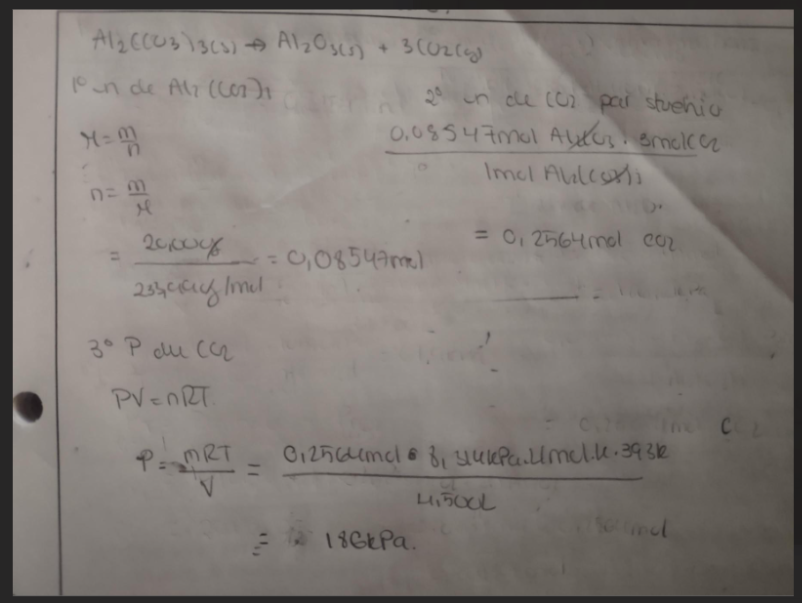 Al2(CO3)3(s) → Al2O3(s) + 3CO2(g)
1° n de Al2(CO3)3
M = m/n
n = m/M
= 20,00g / 233,99g/mol = 0,08547mol
2° n de CO2 par stœchio
0,08547mol Al2(CO3)3 · 3molCO2 / 1mol Al2(CO3)3
= 0,2564mol CO2
3° P du CO2
PV = nRT
P = nRT/V = 0,2564mol • 8,314kPa·L/mol·K · 393K / 4,500L
= 186kPa.